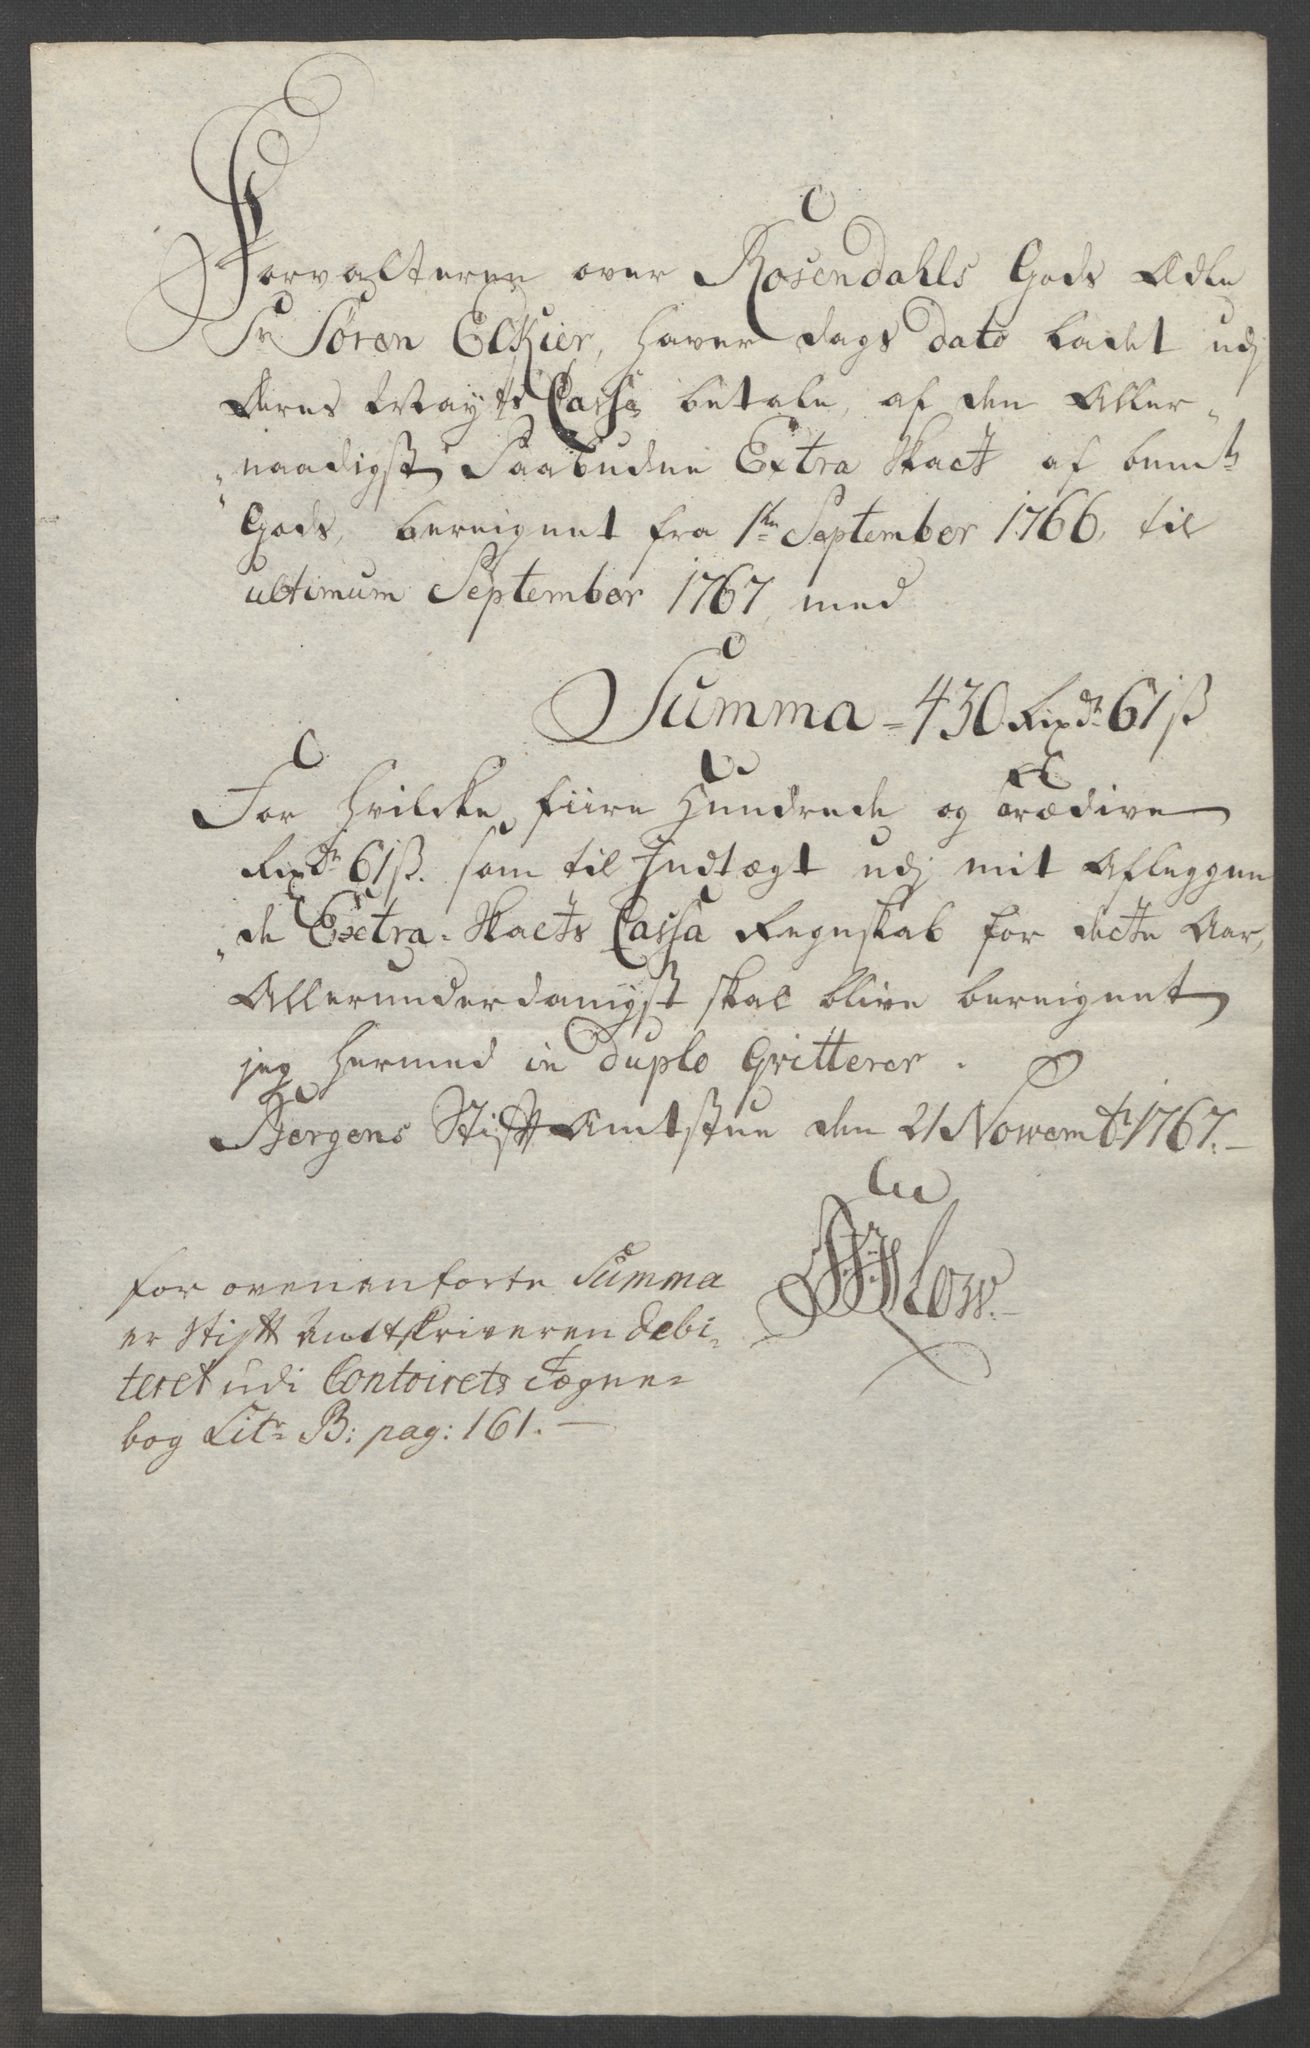 Forvalteren over Rosendahls Gods Ædle
Sr Sören Elckier, haver dags dato ladet udj
Deres Mayts Cassa betale, af den Aller-
naadigst Paabudne Extra Skact af bemte
Gods, bereignet fra 1ste September 1766, til
ultimum September 1767, med
Summa = 430 Rixdr 61 ß
For hvilcke fiire Hundrede og trædive
Rixdr 61 ß. som til Indtægt udj mit Afleggen
de Extra-Skacts Cassa Regnskab for dette Aar,
Allerunderdanigst skal blive bereignet
jeg hermed in duplo Qvitterer.
Bergens Stifft Amtstue den 21 Novembr 1767.
for ovenanførte Summa
er Stifft Amtskriveren debi-
teret udi Contoirets Tegne-
bog Litr B: pag: 161.